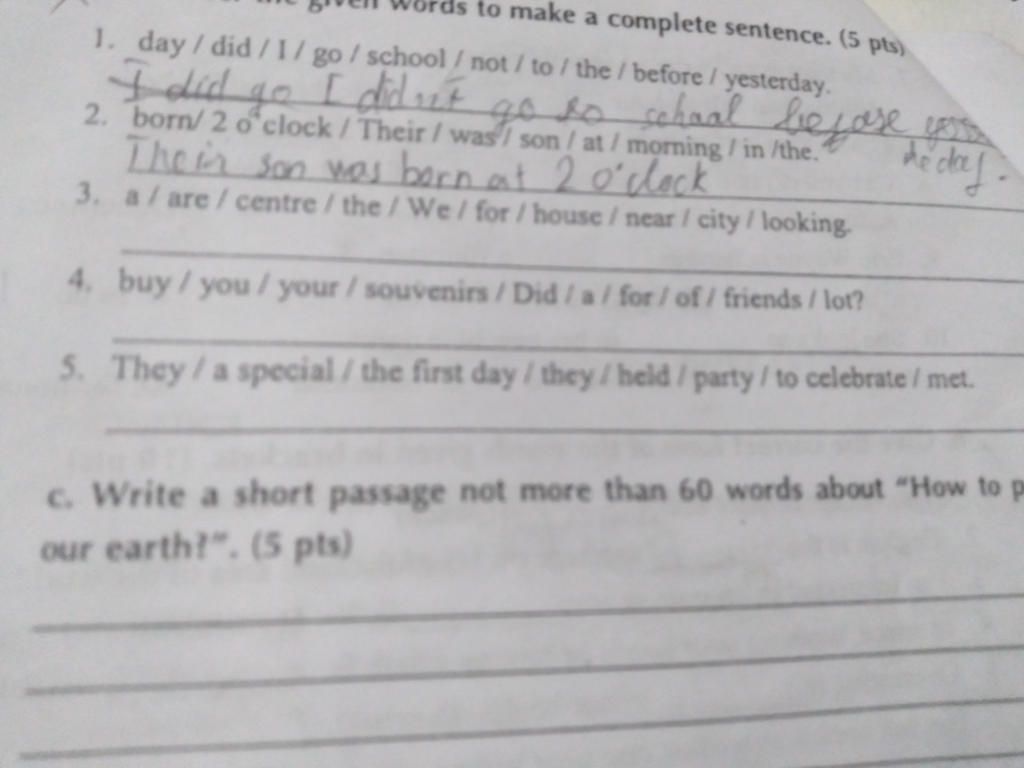 given words to make a complete sentence. (5 pts)
1. day / did / I / go / school / not / to / the / before / yesterday.
I did go I didn't go to school before yes
the day.
2. born/ 2 o'clock / Their / was / son / at / morning / in /the.
Their son was born at 2 o'clock
3. a / are / centre / the / We / for / house / near / city / looking.
4. buy / you / your / souvenirs / Did / a / for / of / friends / lot?
5. They / a special / the first day / they / held / party / to celebrate / met.
c. Write a short passage not more than 60 words about "How to p
our earth?". (5 pts)